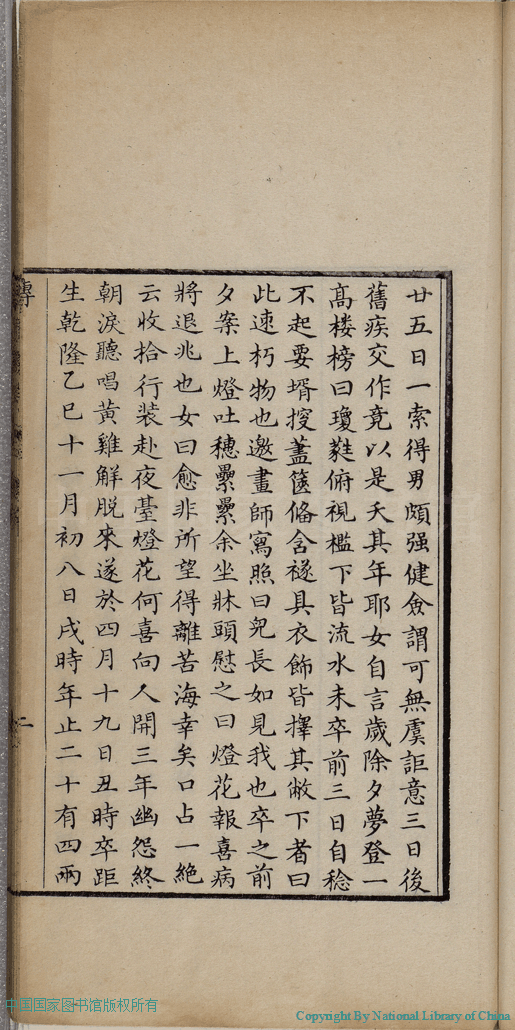 廿五日一索得男頗强健僉謂可無虞詎意三日後
舊疾交作竟以是夭其年耶女自言歲除夕夢登一
高楼榜曰瓊蕤俯視檻下皆流水未卒前三日自稔
不起要壻搜藎篋俻含襚具衣飾皆擇其敝下者曰
此速朽物也邀畫師寫照曰兒長如見我也卒之前
夕案上燈吐穗纍纍余坐牀頭慰之曰燈花報喜病
將退兆也女曰愈非所望得離苦海幸矣口占一絶
云收拾行装赴夜臺燈花何喜向人開三年幽怨終
朝淚聽唱黃雞解脱來遂於四月十九日丑時卒距
生乾隆乙巳十一月初八日戌時年止二十有四兩
傳
二
中国国家图书馆版权所有
Copyright By National Library of China